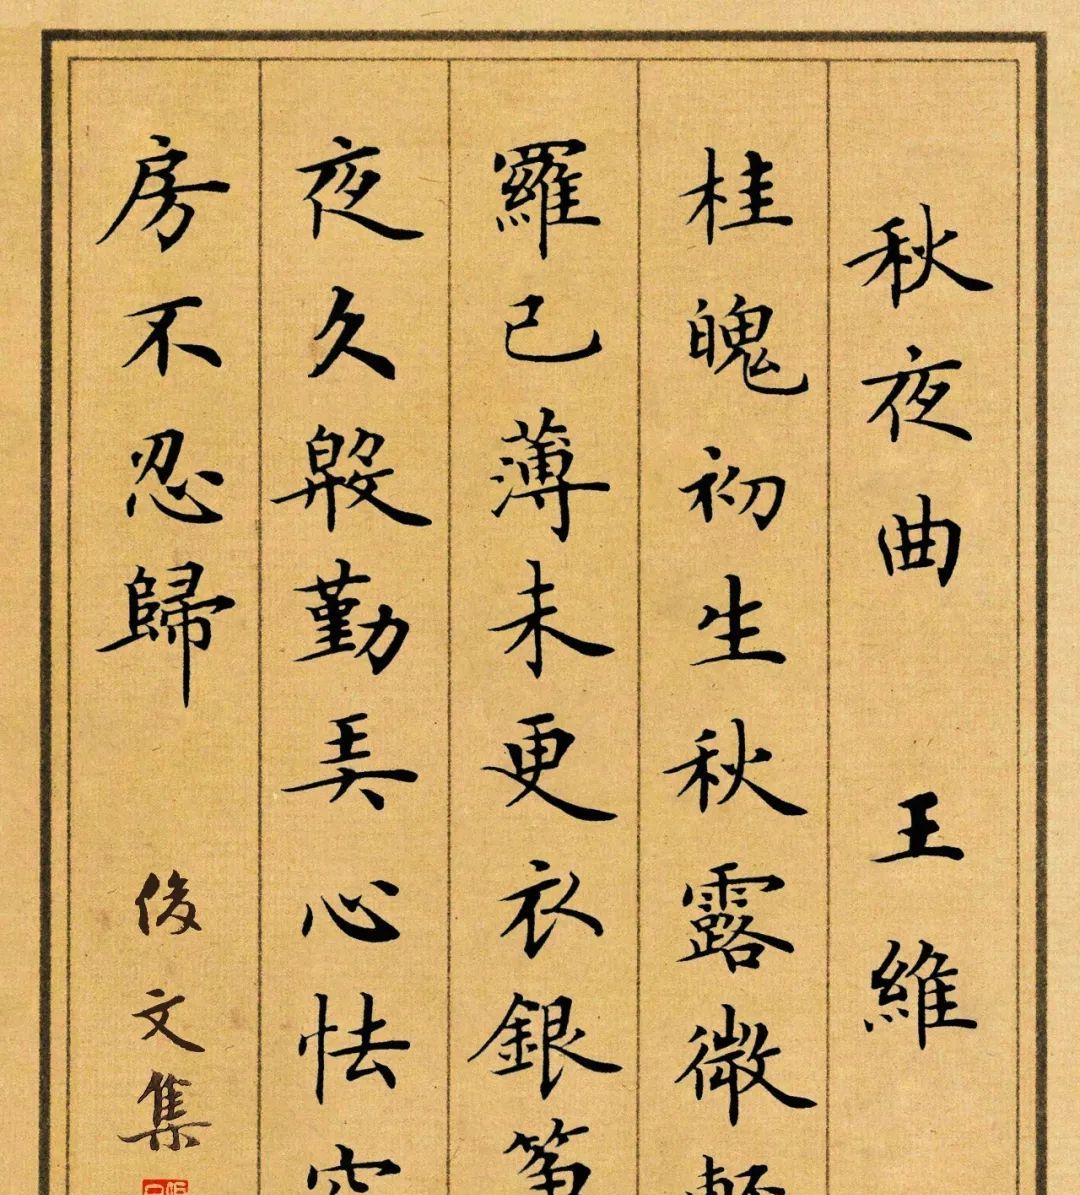 秋夜曲 王維
桂魄初生秋露微
羅已薄未更衣銀箏
夜久殷勤弄心怯空
房不忍歸 俊文集